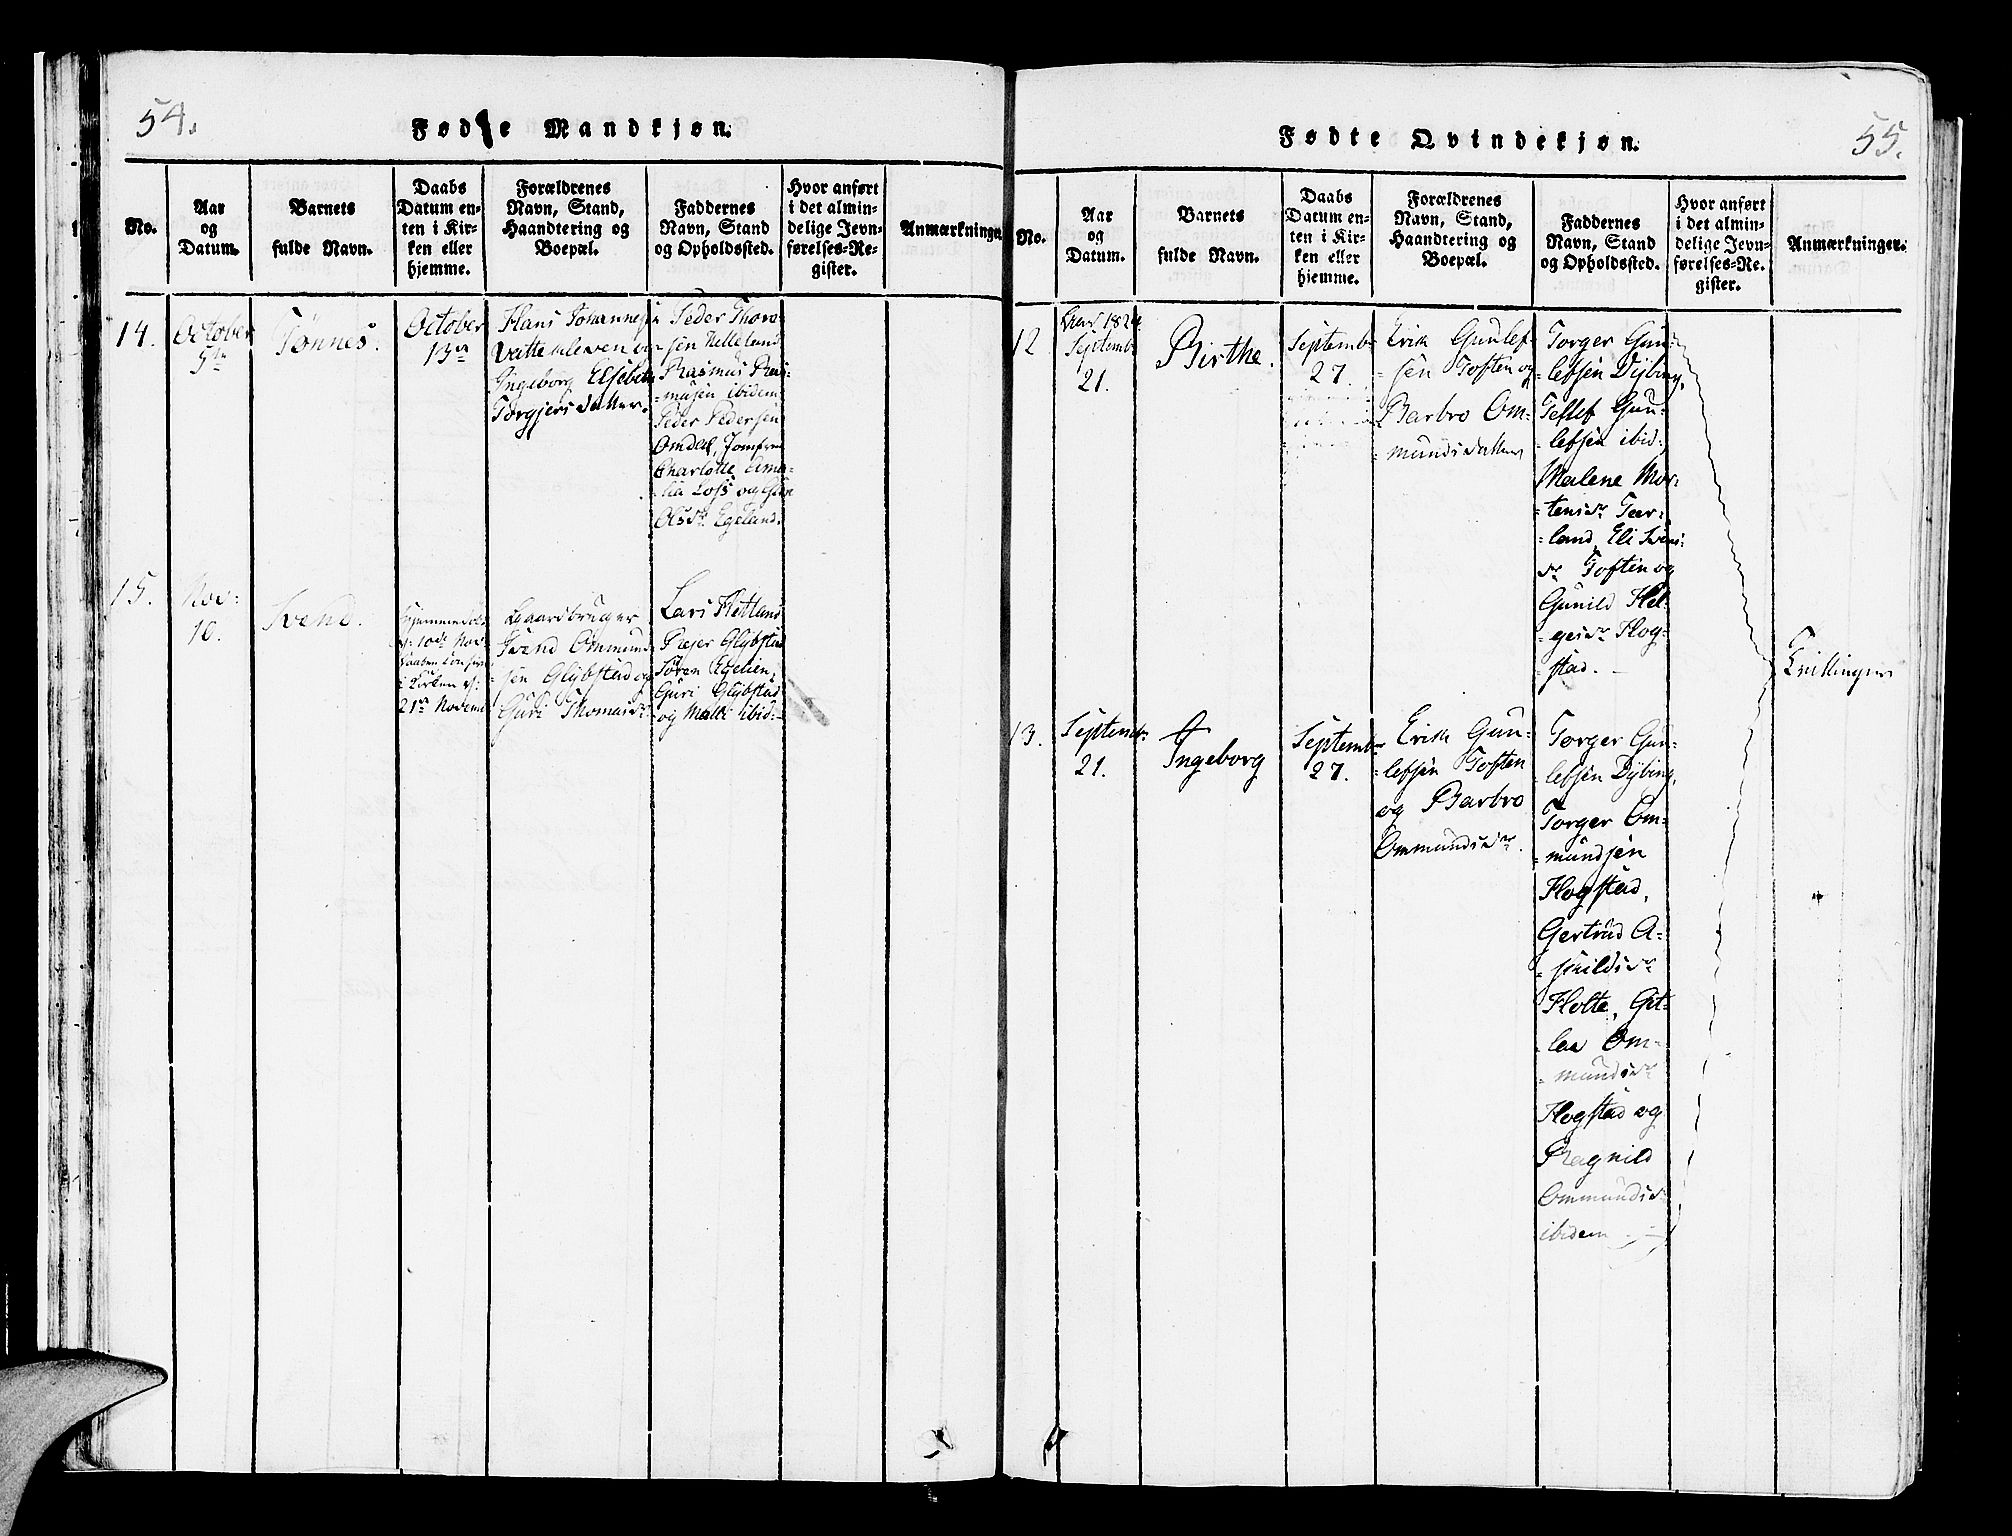 54.
Fødte Mandkjøn.
No.
Aar
og
Datum.
Barnets
fulde Navn.
Daabs
Datum en-
ten i Kir-
ken eller
hjemme.
Forældrenes
Navn, Stand,
Haandtering og
Boepæl.
Faddernes
Navn, Stand
og Opholdssted.
Hvor anført
i det almin-
delige Jevn-
førelses-Re-
gister.
Anmærkninger
14.
October
5te
Tønnes.
October
13de
Hans Johannes
Vattekleven og
Ingeborg Elsebeth
Torgjersdatter.
Peder Thors-
sen Helleland
Rasmus Ras-
-musen ibidem
Peder Pedersen
Omdal, Jomfru
Charlotte Ema-
-lia Loss og
Olsdr Egeland.
15.
Nov:
10.
Svend.
Hjemmedøbt
d: 10de Nov
i Kirken d:
21de Novem
Gaardbruger
Svend Ommund-
sen Glybstad og
Guri Thomasdr
Lars Hetland
Peder Glybstad
Søren Egelien,
Guri Glybstad
og Malli ibid:
55.
Fødte Qvindekjøn.
No.
Aar
og
Datum.
Barnets
fulde Navn.
Daabs
Datum en-
ten i Kir-
ken eller
hjemme.
Forældrenes
Navn, Stand,
Haandtering og
Boepæl.
Faddernes
Navn, Stand
og Opholdssted.
Hvor anført
i det almin-
delige Jevn-
førelses-Re-
gister.
Anmærkninger.
12
1824
Septemb:
21.
Birthe.
Septemb:
27.
Erik Gunlef-
-sen Toften og
Barbro Om-
mundsdatter
Torger Gun-
-lefsen Dybing,
Tellef Gun-
-lefsen ibid:
Malene Mor-
-tensdr Tær-
-land, Eli Svens-
dr Toften og
Gunild Hel-
-gesdr Flog-
-stad.
Tvillinger
13.
Septemb:
21.
Ingeborg
Septemb:
27.
Erik Gun-
-lefsen Toften
og Barbro
Ommundsdr.
Torger Gun-
-lefsen Dybing,
Torger Om-
-mundsen
Flogstad,
Gertrud A-
-snildsdr
Holte, Git-
-laa Om-
-mundsdr
Flogstad og
Ragnild
Ommundsdr
ibidem